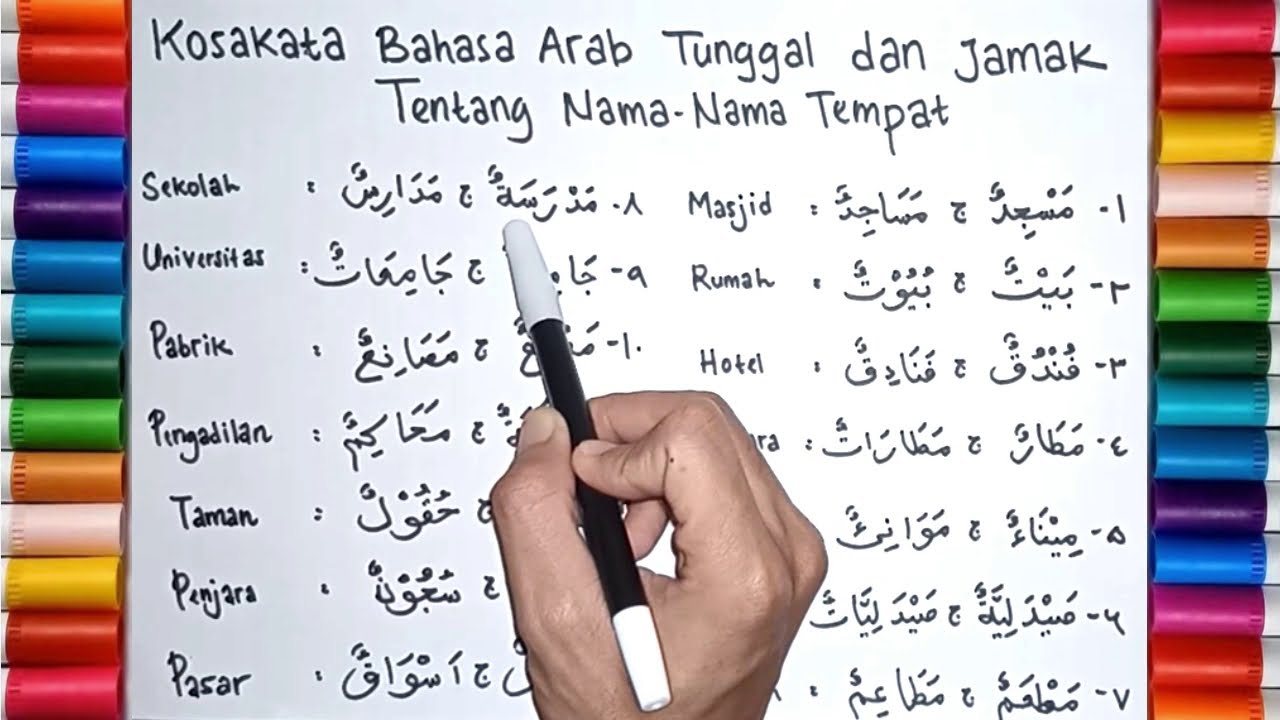 Kosakata Bahasa Arab Tunggal dan Jamak
Tentang Nama-Nama Tempat
١- مَسْجِدٌ ج مَسَاجِدٌ : Masjid
٢- بَيْتٌ ج بُيُوْتٌ : Rumah
٣- فُنْدُقٌ ج فَنَادِقٌ : Hotel
٤- مَطَارٌ ج مَطَارَاتٌ :
٥- مِيْنَاءٌ ج مَوَانِئٌ
٦- صَيْدَلِيَّةٌ ج صَيْدَلِيَّاتٌ
٧- مَطْعَمٌ ج مَطَاعِمٌ :
٨- مَدْرَسَةٌ ج مَدَارِسٌ : Sekolah
٩- ج جَامِعَاتٌ : Universitas
١٠- ج مَصَانِعٌ : Pabrik
ج مَحَاكِمٌ : Pengadilan
ج حُقُوْلٌ : Taman
ج سُجُوْنٌ : Penjara
ج اَسْوَاقٌ : Pasar